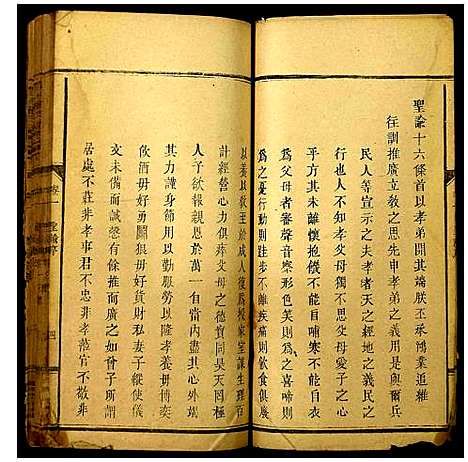 聖諭十六條首以孝弟開其端朕丕承鴻業追維
往訓推廣立敎之思先申孝弟之義用是與爾兵
民人等宣示之夫孝者天之經地之義民之
行也人不知孝父母獨不思父母愛子之心
乎方其未離懷抱饑不能自哺寒不能自衣
爲父母者審聲音察形色笑則爲之喜啼則
爲之憂行動則跬步不離疾痛則寢食俱廢
以養以敎至於成人復爲授家室謀生理百
計經營心力俱瘁父母之德實同昊天罔極
人子欲報親恩於萬一自當内盡其心外竭
其力謹身節用以勤服勞以隆孝養毋博奕
飲酒毋好勇鬭狠毋好貨財私妻子縱使儀
文未備而誠慤有餘推而廣之如曾子所謂
居處不莊非孝事君不忠非孝涖官不敬非